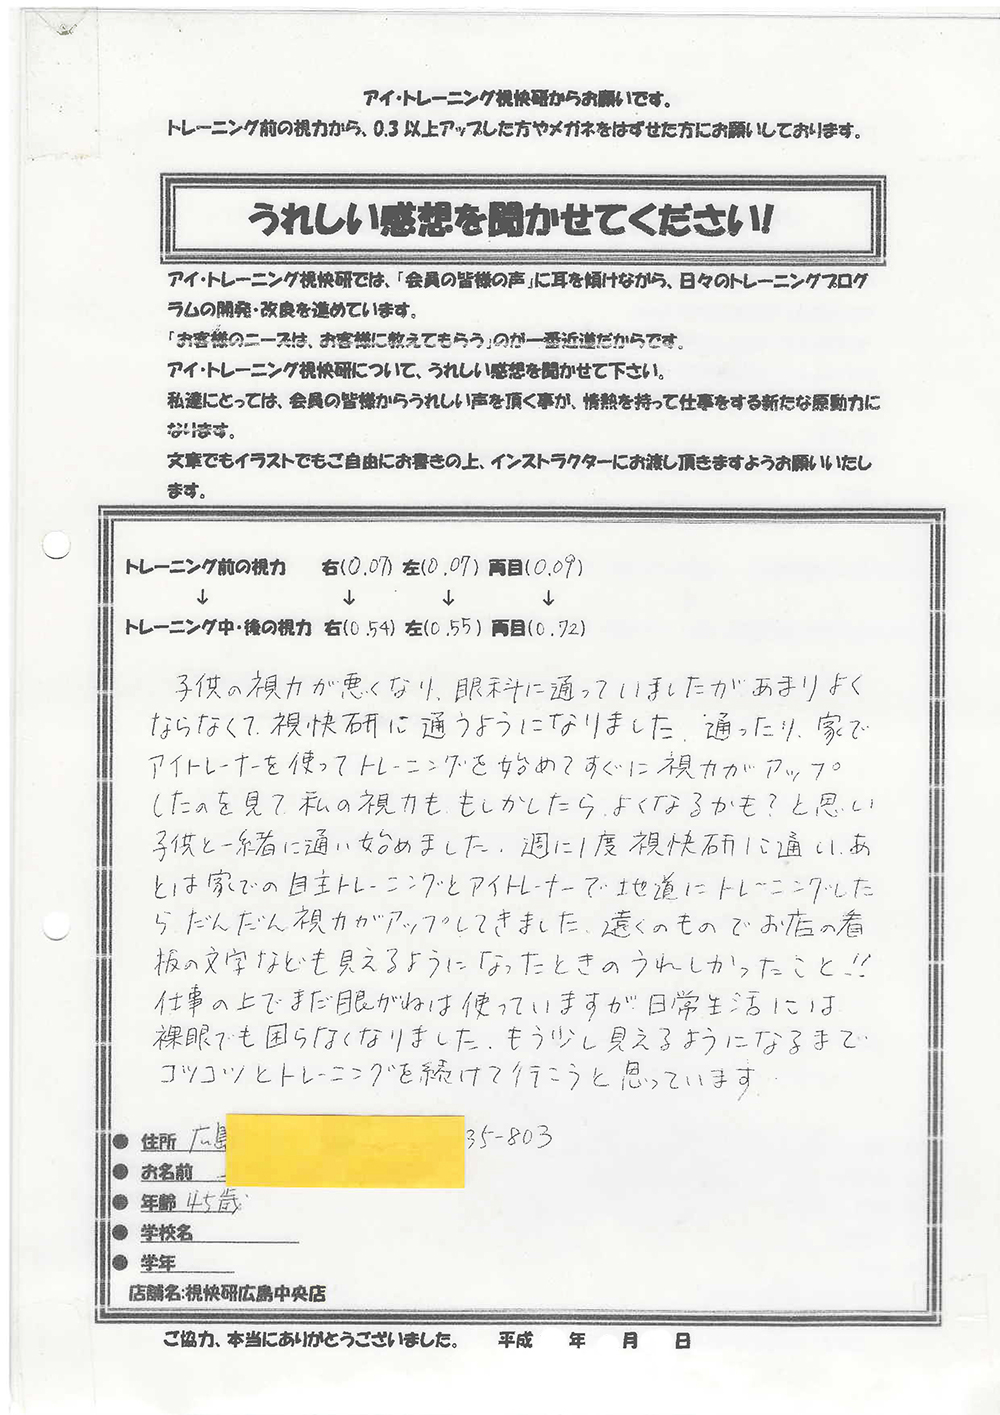 アイ・トレーニング視快研からお願いです。
トレーニング前の視力から、0.3以上アップした方やメガネをはずせた方にお願いしております。
うれしい感想を聞かせてください!
アイ・トレーニング視快研では、「会員の皆様の声」に耳を傾けながら、日々のトレーニングプログ
ラムの開発・改良を進めています。
「お客様のニーズは、お客様に教えてもらう」のが一番近道だからです。
アイ・トレーニング視快研について、うれしい感想を聞かせて下さい。
私達にとっては、会員の皆様からうれしい声を頂く事が、情熱を持って仕事をする新たな原動力に
なります。
文章でもイラストでもご自由にお書きの上、インストラクターにお渡し頂きますようお願いいたし
ます。
トレーニング前の視力 右(0.07) 左(0.07) 両目(0.09)
↓ ↓ ↓ ↓
トレーニング中・後の視力 右(0.54) 左(0.55) 両目(0.72)
子供の視力が悪くなり、眼科に通っていましたがあまりよく
ならなくて、視快研に通うようになりました。通ったり、家で
アイトレーナーを使ってトレーニングを始めてすぐに視力がアップ
したのを見て、私の視力も、もしかしたら、よくなるかも?と思い
子供と一緒に通い始めました。週に1度視快研に通い、あ
とは家での自主トレーニングとアイトレーナーで地道にトレーニングした
ら、だんだん視力がアップしてきました。遠くのものでお店の看
板の文字なども見えるようになったときのうれしかったこと!!
仕事の上でまだ眼がねは使っていますが、日常生活には
裸眼でも困らなくなりました。もう少し見えるようになるまで
コツコツとトレーニングを続けて行こうと思っています。
● 住所 広島 35-803
● お名前
● 年齢 45歳
● 学校名
● 学年
店舗名:視快研広島中央店
ご協力、本当にありがとうございました。 平成 年 月 日